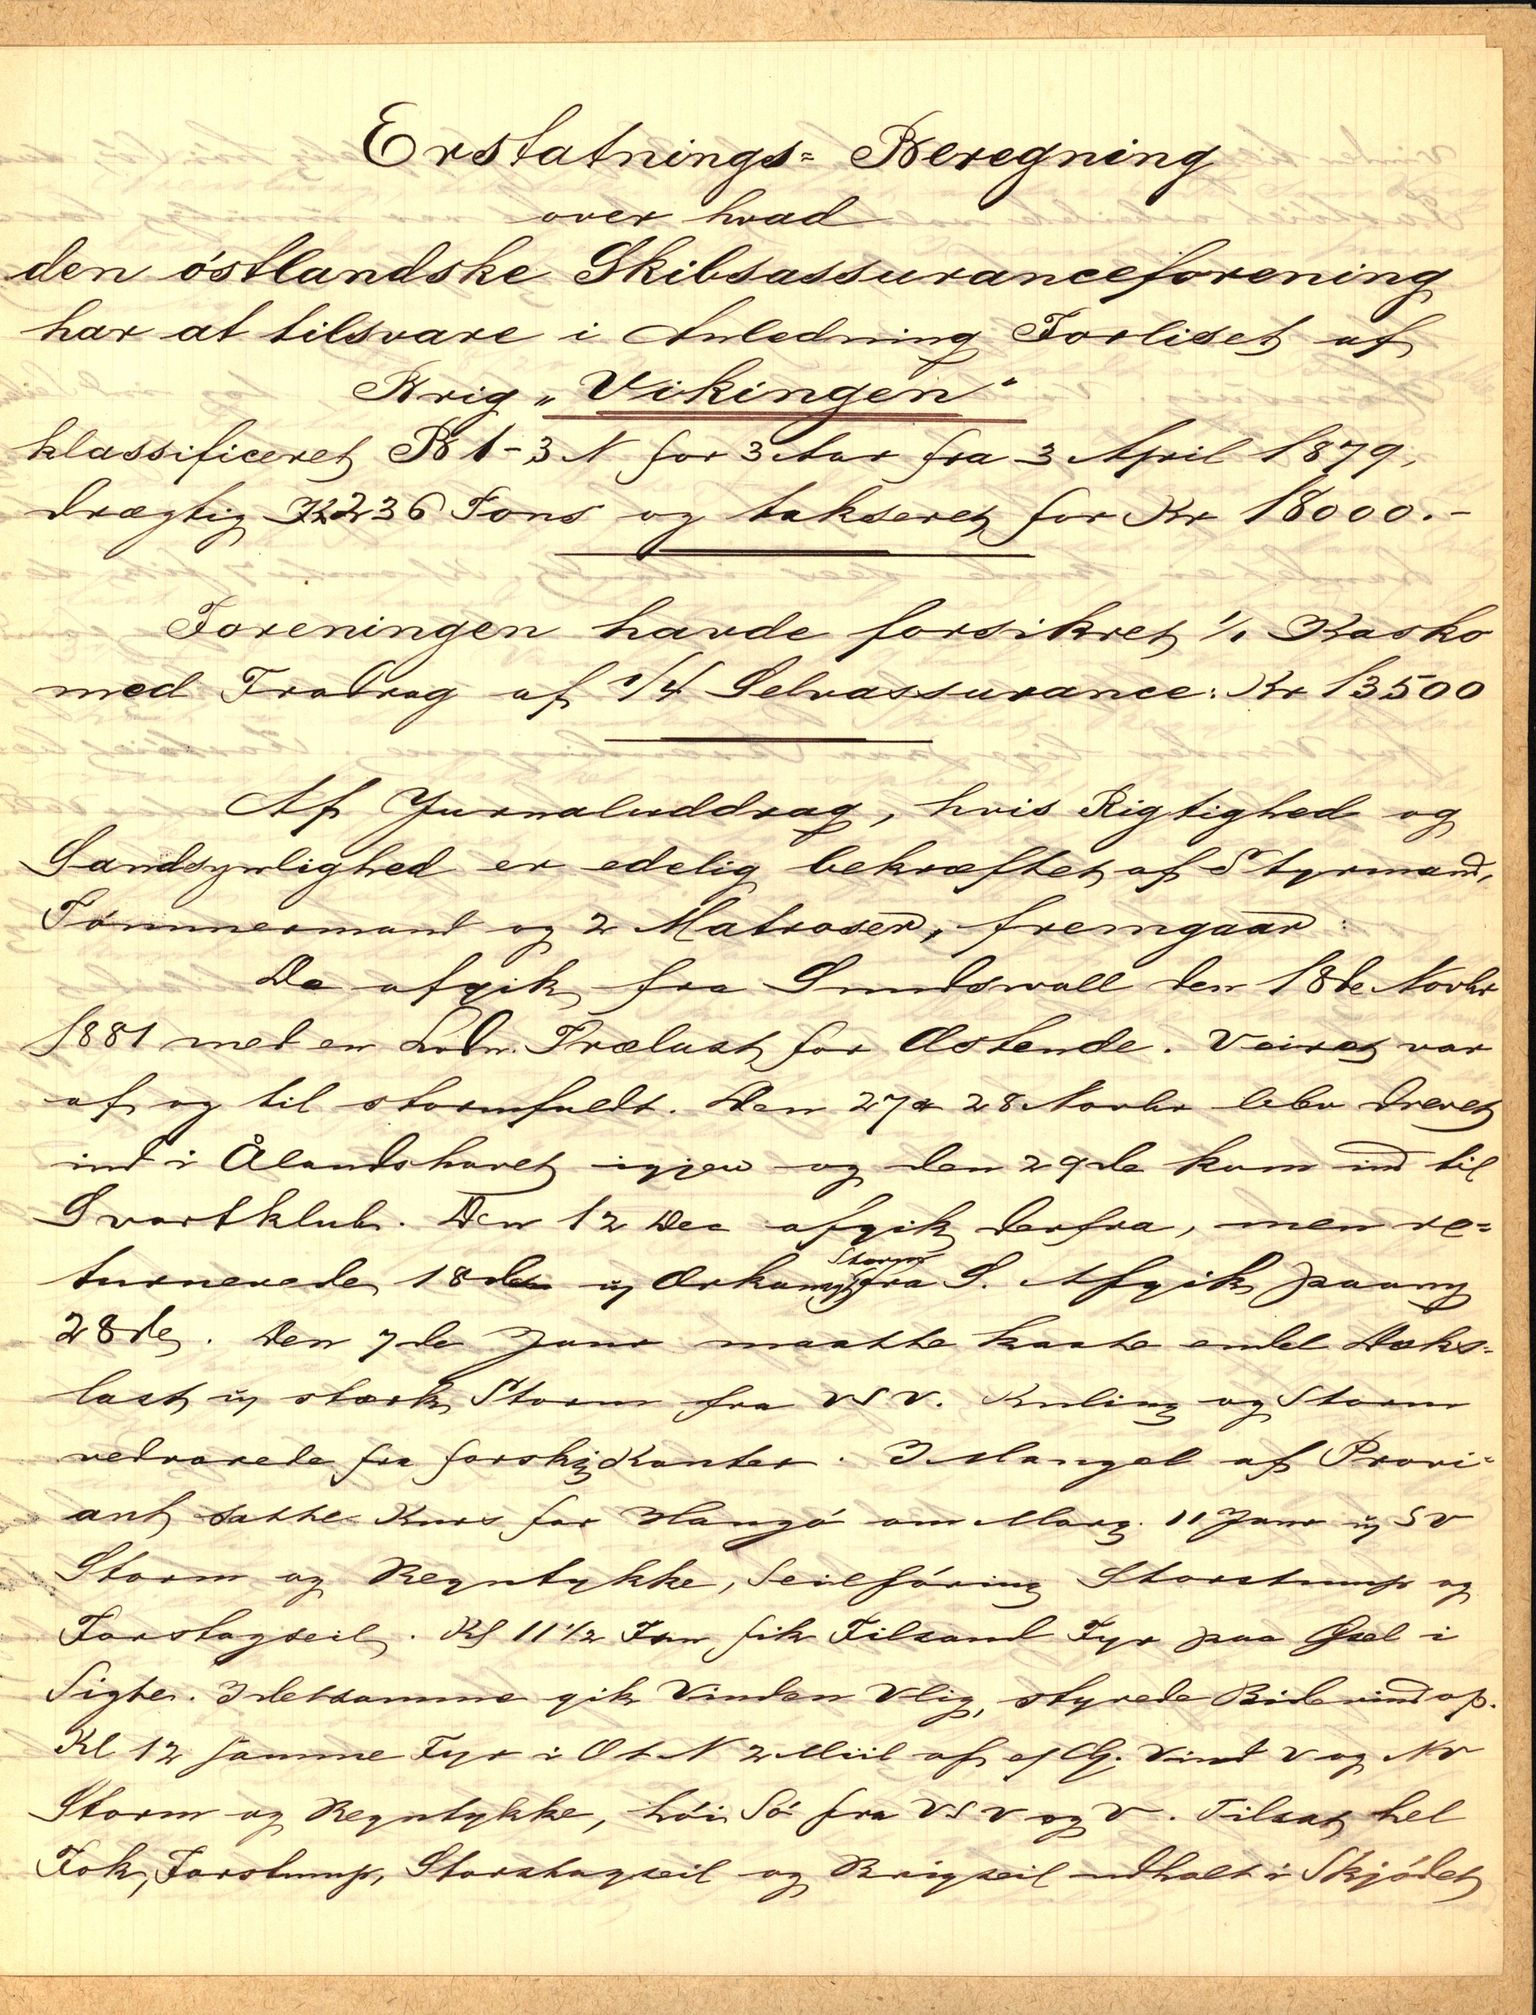 Erstatnings= Beregning
over hvad
den östlandske Skibsassuranceforening
har at tilsvare i Anledning Forliset af
Brig „Vikingen"
klassificeret B 1 - 3 N for 3 Aar fra 3 April 1879,
drægtig 236 Tons og takseret for Kr 18000.-
Foreningen havde forsikret 1/1 Kasko
med Fradrag af 1/4 Selvassurance: Kr 13500
Af Jurnaluddrag, hvis Rigtighed og
Sandsynlighed er edelig bekræftet af Styrmand,
Tømmermand og 2 Matroser, fremgaar:
De afgik fra Sundswall den 18de Novbr
1881 med en Ladn. Trælast for Ostende. Veiret var
af og til stormfuldt. Den 27 & 28 Novbr blev drevet
ind i Ålandshavet igjen og den 29de kom ind til
Svartklub. Den 12 Dec afgik derfra, men re=
turnerede 18de m Orkanag Storm fra S. Afgik paany
28de. Den 7de Janr maatte kaste endel Dæks=
last m stærk Storm fra VSV. Kuling og Storm
vedvarede fra forskj Kanter. I Mangel af Provi=
ant satte Kurs for Hangö om Morg. 11 Janr m SV
Storm og Regntykke, Seilföring Storstump og
Forstagseil. Kl 11 1/2 Fm fik Filsand Fyr paa Øsel i
Sigte. I detsamme gik Vinden Vlig, styrede Bidevind op.
Kl 12 samme Fyr i O t N 2 Miil af Vind V og NV
Storm og Regntykke, höi Sö fra VSV og V. Tilsat hel
Fok, Forstump, Storstagseil og Brigseil udhalt i Skjödet